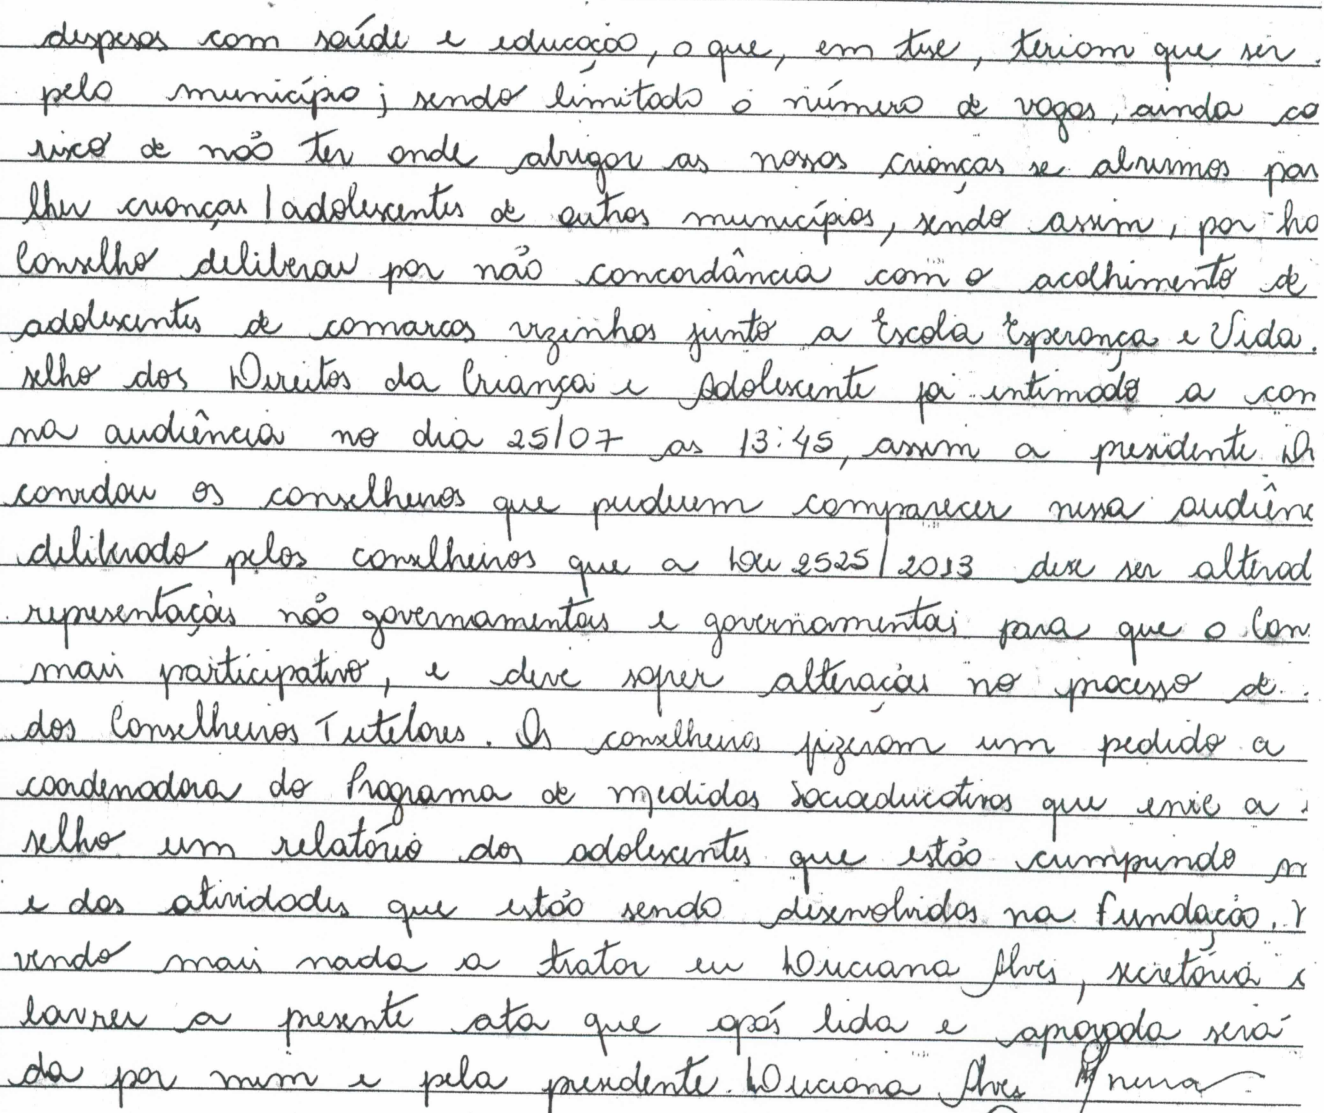 despesas com saúde e educação, o que, em tese, teriam que ser
pelo município; sendo limitado o número de vagas, ainda co
risco de não ter onde abrigar as nossas crianças se abrirmos par
lher crianças/adolescentes de outros municípios, sendo assim, por ho
Conselho deliberou por não concordância com o acolhimento de
adolescentes de comarcas vizinhas junto a Escola Esperança e Vida.
selho dos Direitos da Criança e Adolescente foi intimado a com
na audiência no dia 25/07 as 13:45, assim a presidente
convidou os conselheiros que puderem comparecer nessa audiênc
deliberado pelos conselheiros que a Lei 2525/2013 deve ser alterad
representações não governamentais e governamentais para que o Con
mais participativo, e deve sofrer alterações no processo de
dos Conselheiros Tutelares. Os conselheiros fizeram um pedido a
coordenadora do Programa de Medidas Socioeducativas que envie a
selho um relatório dos adolescentes que estão cumprindo m
e das atividades que estão sendo desenvolvidas na fundação.
vendo mais nada a tratar eu Luciana Alves, secretária
lavrei a presente ata que após lida e aprovada será
da por mim e pela presidente. Luciana Alves